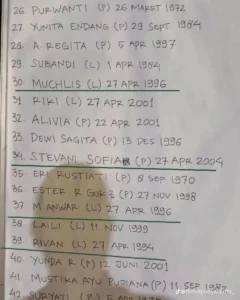 26. PURWANTI (P) 26 MARST 1972
27. YUNITA ENDANG (P) 29 SEPT 1984
28. A REGITA (P) 5 APR 1997
29. SUBANDI (L) 1 APR 1984
30. MUCHLIS (L) 27 APR 1996
31. RIKI (L) 27 APR 2001
32. ALIVIA (P) 22 APR 2001
33. DEWI SAGITA (P) 13 DES 1996
34. STEVANI SOFIA (P) 27 APR 2004
35. ERI RUSTIATI (P) 8 SEP 1970
36. ESTER R GUK² (P) 27 NOV 1998
37. M ANWAR (L) 27 APR 1996
38. LAILI (L) 11 NOV 1999
39. RIVAN (L) 27 APR 1994
40. YUNDA R (P) 12 JUNI 2001
41. MUSTIKA AYU PUJIANA (P) 11 SEP
42. SURYATI (P) 5 APR